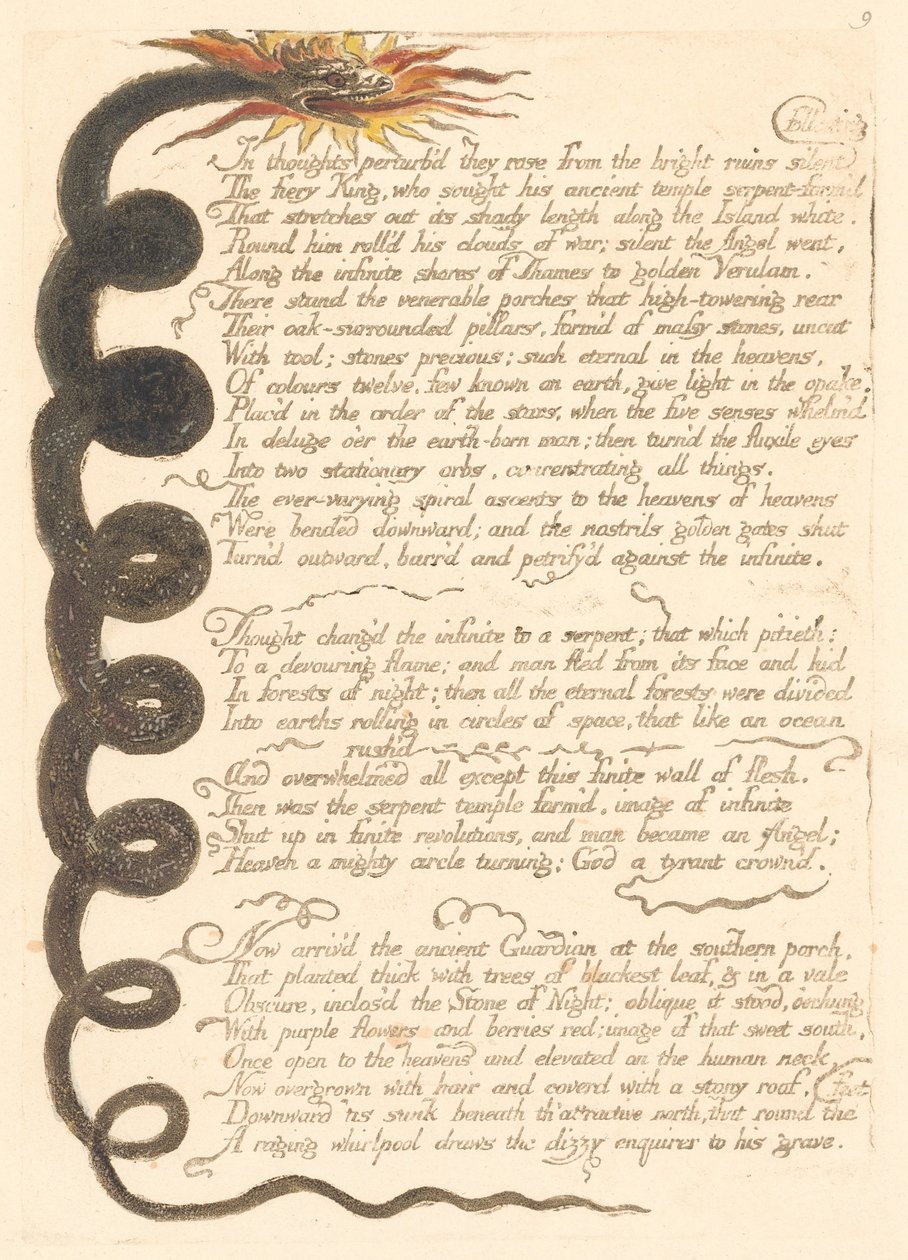 9
following
In thoughts perturb'd they rose from the bright ruins silent
The fiery King, who sought his ancient temple serpent-form'd
That stretches out its shady length along the Island white.
Round him roll'd his clouds of war; silent the Angel went,
Along the infinite shores of Thames to golden Verulam.
There stand the venerable porches that high-towering rear
Their oak-surrounded pillars, form'd of massy stones, uncut
With tool; stones precious; such eternal in the heavens,
Of colours twelve, few known on earth, give light in the opake,
Plac'd in the order of the stars, when the five senses whelm'd
In deluge o'er the earth-born man; then turn'd the fluxile eyes
Into two stationary orbs, concentrating all things.
The ever-varying spiral ascents to the heavens of heavens
Were bended downward; and the nostrils golden gates shut
Turn'd outward, barr'd and petrify'd against the infinite.
Thought chang'd the infinite to a serpent; that which pitieth:
To a devouring flame; and man fled from its face and hid
In forests of night; then all the eternal forests were divided
Into earths rolling in circles of space, that like an ocean
rush'd
And overwhelmed all except this finite wall of flesh.
Then was the serpent temple form'd, image of infinite
Shut up in finite revolutions, and man became an Angel;
Heaven a mighty circle turning; God a tyrant crown'd.
Now arriv'd the ancient Guardian at the southern porch,
That planted thick with trees of blackest leaf, & in a vale
Obscure, inclos'd the Stone of Night; oblique it stood, o'erhung
With purple flowers and berries red; image of that sweet south,
Once open to the heavens and elevated on the human neck,
Now overgrown with hair and coverd with a stony roof,
Downward 'tis sunk beneath th' attractive north, that round the feet
A raging whirlpool draws the dizzy enquirer to his grave.